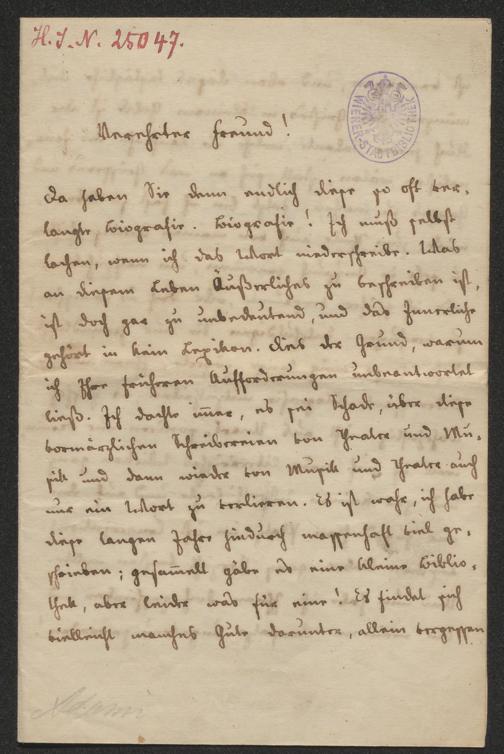 H. I. N. 25047.
WIENER-STADTBIBLIOTHEK
Verehrter Freund!
Da haben Sie denn endlich diese so oft ver-
langte Biografie. Biografie! Ich muß selbst
lachen, wenn ich das Wort niederschreibe. Was
an diesem Leben Äußerliches zu beschreiben ist,
ist doch gar zu unbedeutend, und das Innerliche
gehört in kein Lexikon. Dies der Grund, warum
ich Ihre früheren Aufforderungen unbeantwortet
ließ. Ich dachte immer, es sei Schade, über diese
vormärzlichen Schreibereien von Theater und Mu-
sik und dann wieder von Musik und Theater auch
nur ein Wort zu verlieren. Es ist wahr, ich habe
diese langen Jahre hindurch massenhaft viel ge-
schrieben; gesam̄elt gäbe es eine kleine Biblio-
thek, aber leider was für eine! Es findet sich
vielleicht manches Gute darunter, allein vergessen
Adami